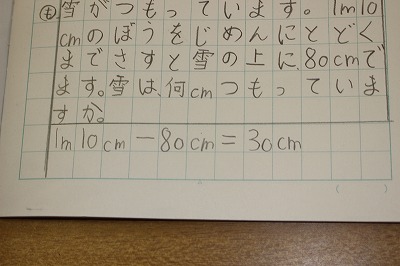 も 雪がつもっています。1m10
cmのぼうをじめんにとどく
までさすと雪の上に、80cmで
ます。雪は、何cmつもっていま
すか。
1m10cm－80cm＝30cm